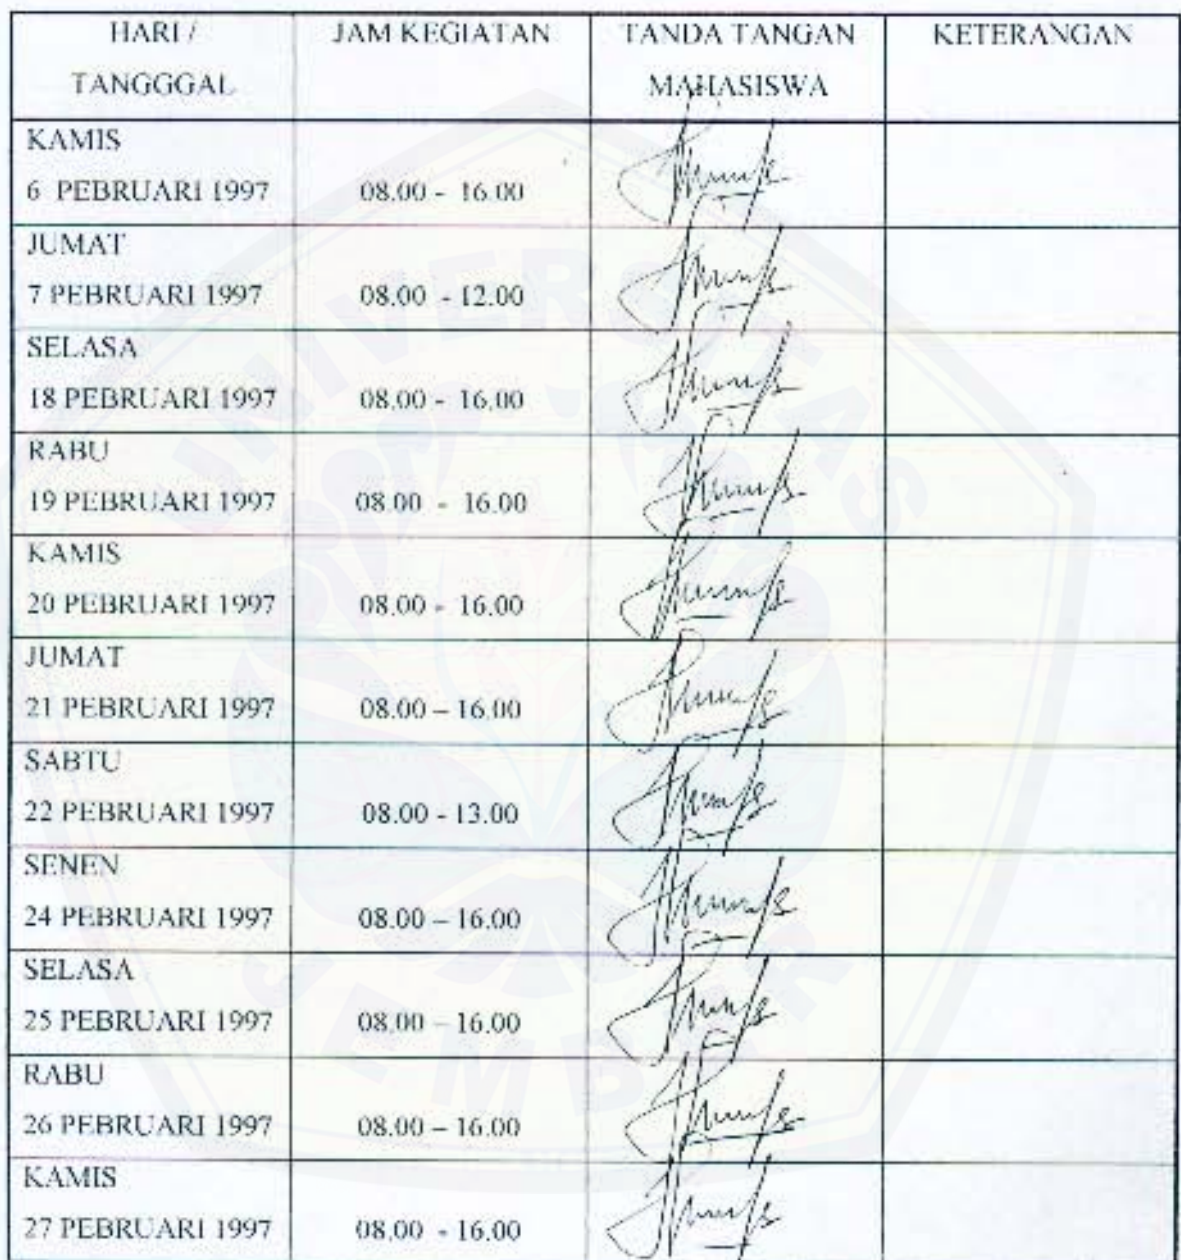 HARI / JAM KEGIATAN TANDA TANGAN KETERANGAN
TANGGGAL MAHASISWA
KAMIS
6 PEBRUARI 1997 08.00 - 16.00
JUMAT
7 PEBRUARI 1997 08.00 - 12.00
SELASA
18 PEBRUARI 1997 08.00 - 16.00
RABU
19 PEBRUARI 1997 08.00 - 16.00
KAMIS
20 PEBRUARI 1997 08.00 - 16.00
JUMAT
21 PEBRUARI 1997 08.00 – 16.00
SABTU
22 PEBRUARI 1997 08.00 - 13.00
SENEN
24 PEBRUARI 1997 08.00 – 16.00
SELASA
25 PEBRUARI 1997 08.00 – 16.00
RABU
26 PEBRUARI 1997 08.00 – 16.00
KAMIS
27 PEBRUARI 1997 08.00 - 16.00
UNIVERSITAS
JEMBER